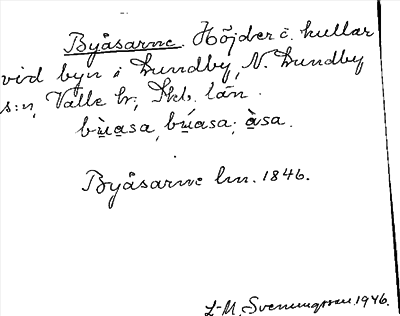 Byåsarne. Höjder o. kullar
vid byn i Lundby, N. Lundby
s:n, Valle hr, Skb. län.
bùasa, búasa; àsa.
Byåsarne lm. 1846.
L-M. Svenungsson 1946.